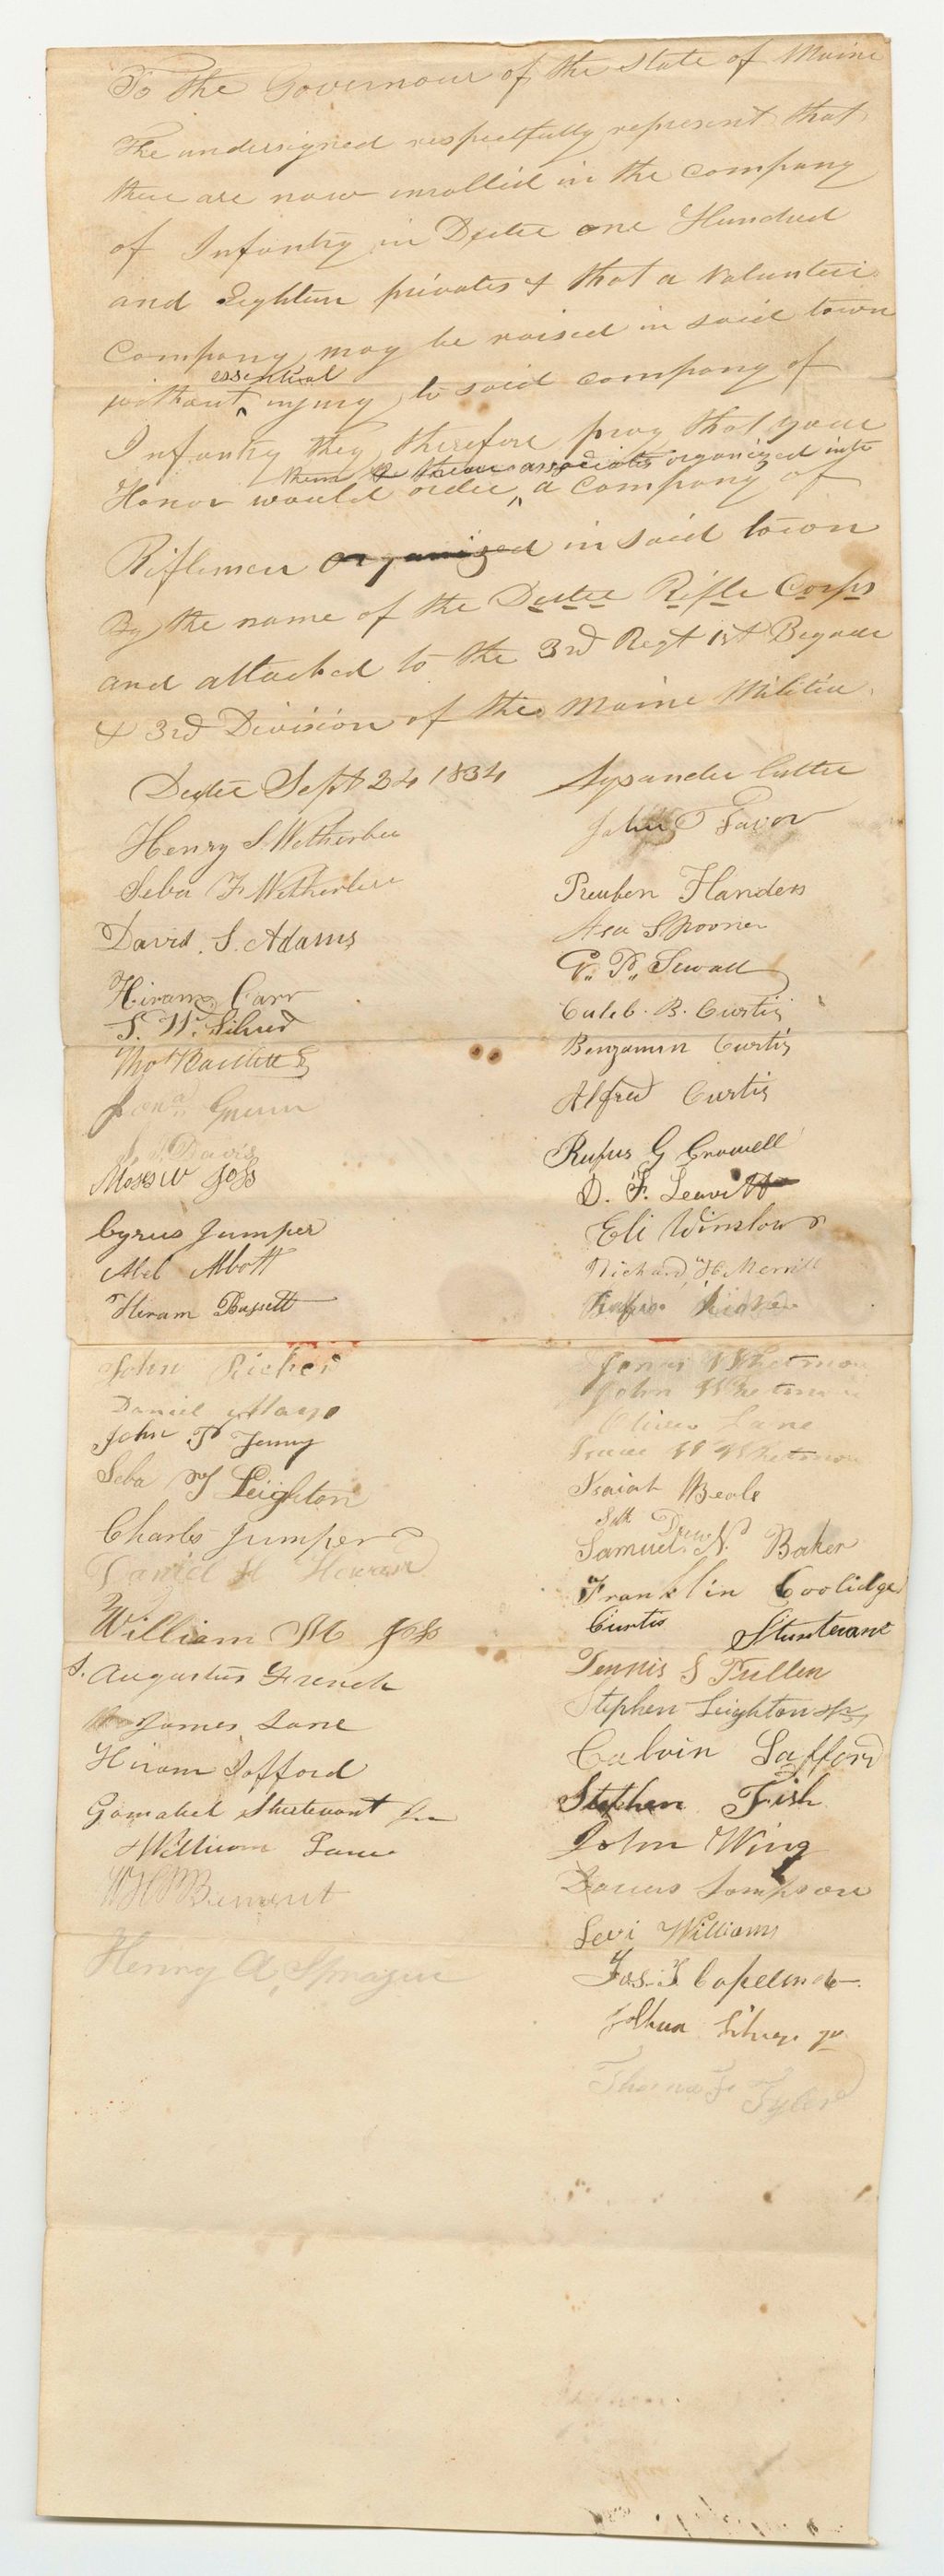 To The Governour of the State of Maine
The undersigned respectfully represent that
there are now inrolled in the company
of Infantry in Dexter one Hundred
and Eighteen privates & that a Volunteer
Company may be raised in said town
essential
without injury to said company of
Infantry they therefore pray that your
them & their associates organized into
Honor would order a company of
Riflemen organized in said town
By the name of the Dexter Rifle Corps
and attached to the 3rd Regt 1st Begade
& 3rd Division of the Maine Militia.
Dexter Sept 24 1834
Henry S Wetherbee
Seba F Wetherbee
David. S. Adams
Hiram Carr
S. W.
Green
Davis
Moses W Joss
Cyrus Jumper
Abel Abbott
Hiram Bassett
John Ricker
Daniel Mayo
John P Jenny
Seba Leighton
Charles Jumper
Daniel H
William M Joss
S. Augustus French
James Lane
Hiram Safford
Gamaliel Sturtevant
William Lane
Bement
Henry A Sprague
Lysander Cutler
John Favor
Reuben Flanders
Asa Spooner
G. P. Sewall
Caleb. B. Curtis
Benjamin Curtis
Alfred Curtis
Rufus G Crowell
D. F. Leavitt
Eli Winslow
Richard H. Merrill
John Whetmore
Oliver Lane
Isaac W Whetmore
Isaiah Beals
Drew
Samuel. N. Baker
Franklin Coolidge
Curtis Sturtevant
Dennis S Fullen
Stephen Leighton Jr
Calvin Safford
Stephen Fish
John Wing
Sampson
Levi Williams
Jas. S Copeland
Jr
Thomas F Tyler